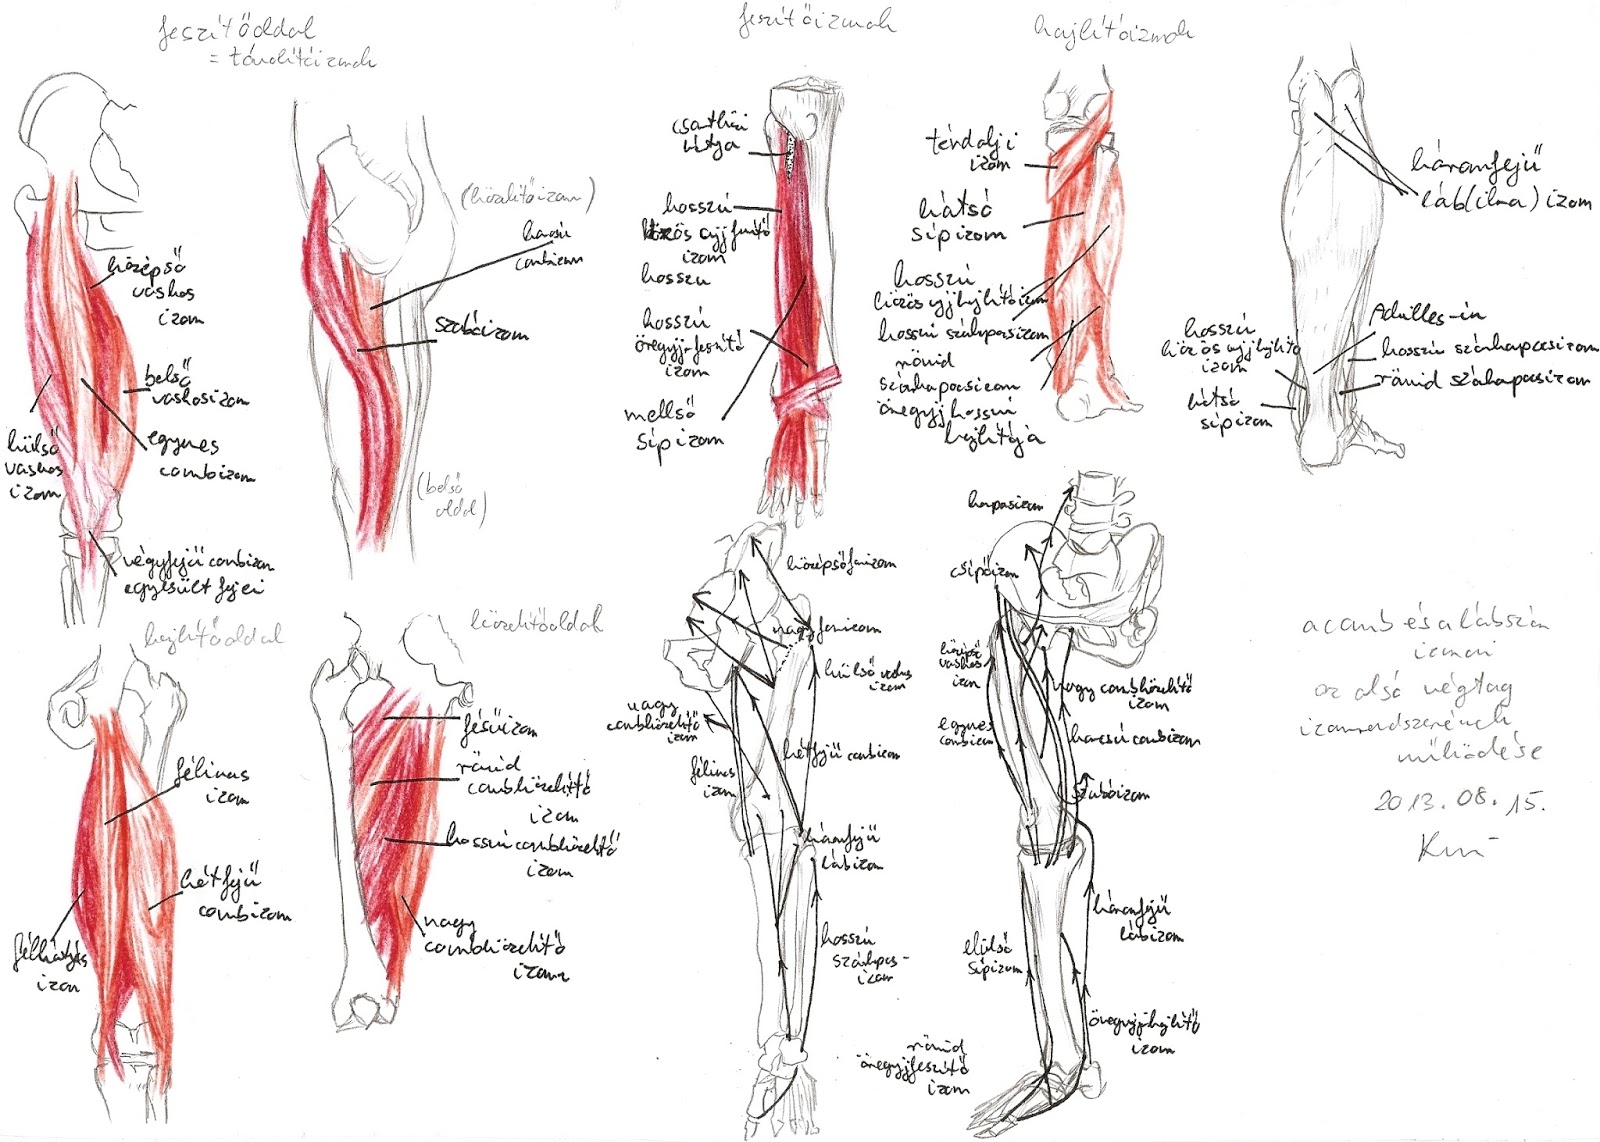 feszítőoldal
= távolítóizmok
középső
vaskos
izom
belső
vaskosizom
külső
vaskos
izom
egyenes
combizom
négyfejű combizom
egyesült fejei
(közelítőizom)
karcsú
combizom
szabóizom
(belső
oldal)
feszítőizmok
csonthézi
hosszú
közös ujjfeszítő
izom
hosszú
hosszú
öregujj-feszítő
izom
mellső
sípizom
hajlítóizmok
térdalji
izom
hátsó
sípizom
hosszú
közös ujjhajlítóizom
hosszú szárkapocsizom
rövid
szárkapocsizom
öregujj hosszú
hajlítója
háromfejű
láb(ikra)izom
Achilles-ín
hosszú szárkapocsizom
rövid szárkapocsizom
hosszú
közös ujjhajlító
izom
hátsó
sípizom
hajlítóoldal
félinas
izom
kétfejű
combizom
félhártyás
izom
közelítőoldal
fésűizom
rövid
combközelítő
izom
hosszú combközelítő
izom
nagy
combközelítő
izom
középső farizom
nagy farizom
külső vaskos
izom
nagy
combközelítő
izom
kétfejű combizom
félinas
izom
háromfejű
lábizom
hosszú
szárkapocs-
izom
rövid
öregujjfeszítő
izom
horpaszizom
csípőizom
középső
vaskos
izom
nagy combközelítő
izom
egyenes
combizom
karcsú combizom
szabóizom
háromfejű
lábizom
elülső
sípizom
öregujjhajlító
izom
a comb és a lábszár
izmai
az alsó végtag
izomrendszerének
működése
2013.08.15.